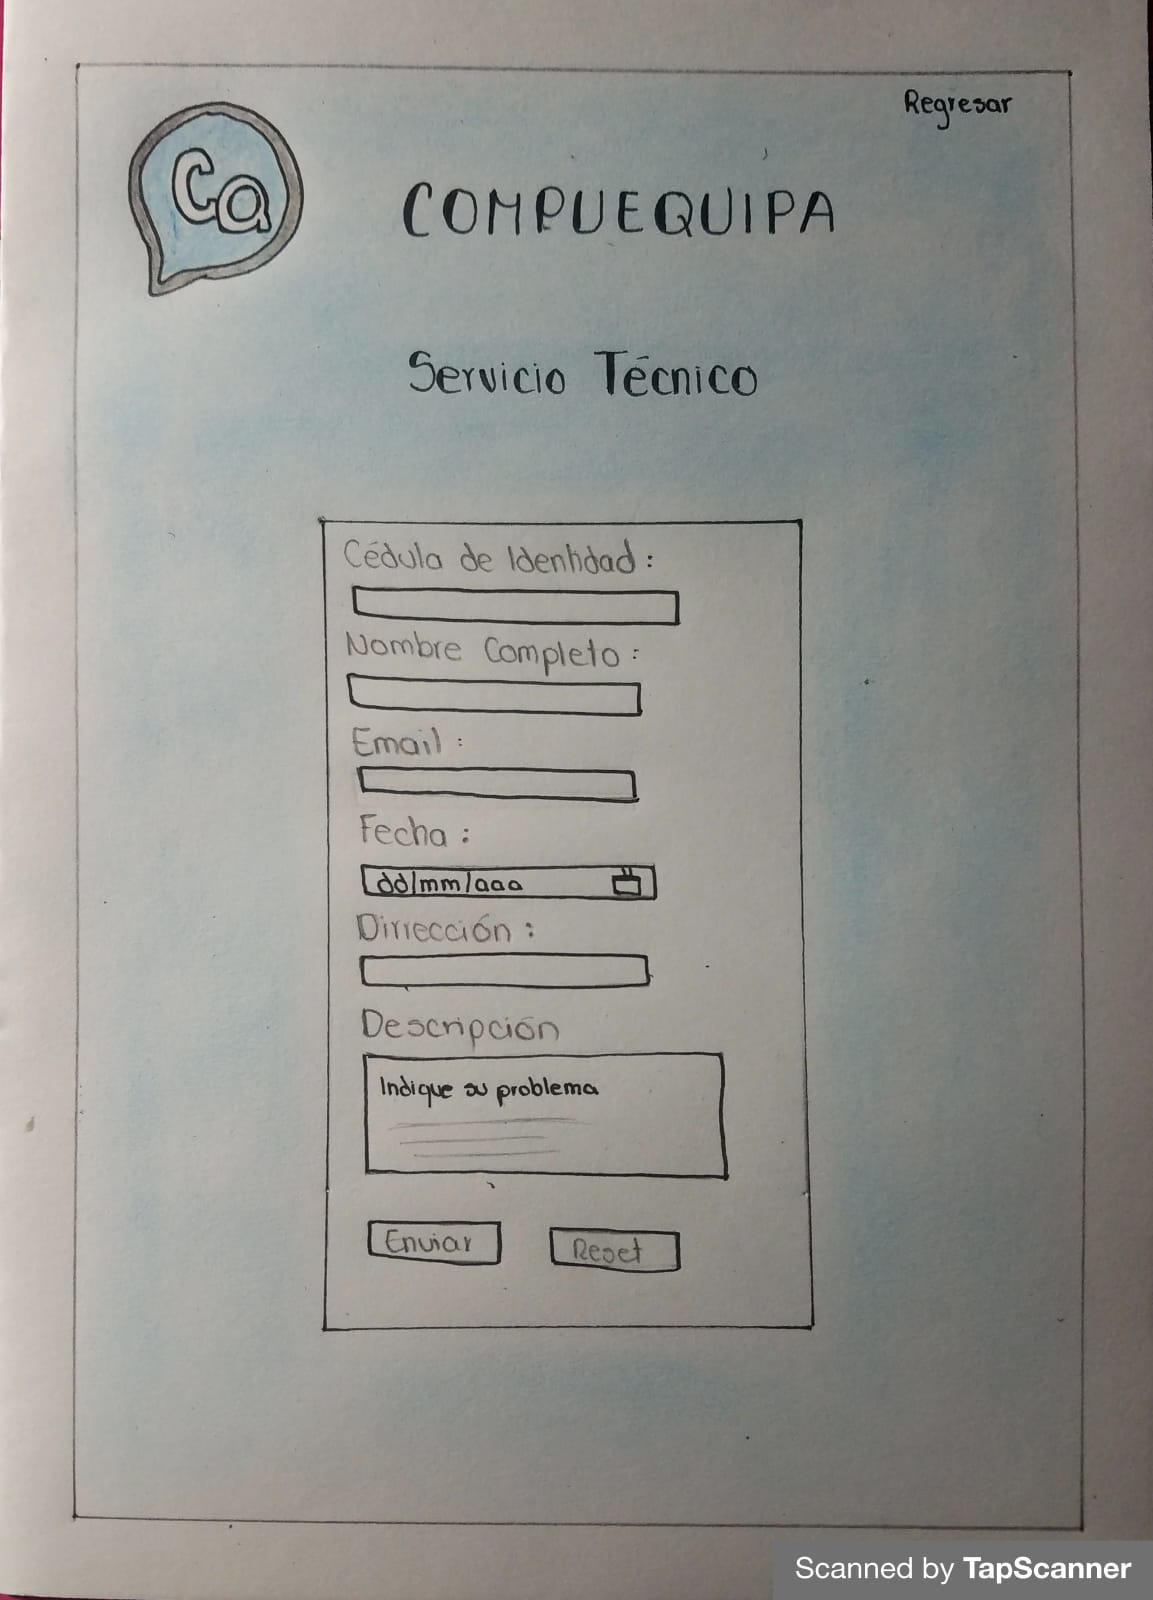 Regresar
Ca
COMPUEQUIPA
Servicio Técnico
Cédula de Identidad :
Nombre Completo :
Email :
Fecha :
dd/mm/aaa
Dirrección :
Descripción
Indique su problema
Enviar
Reset
Scanned by TapScanner